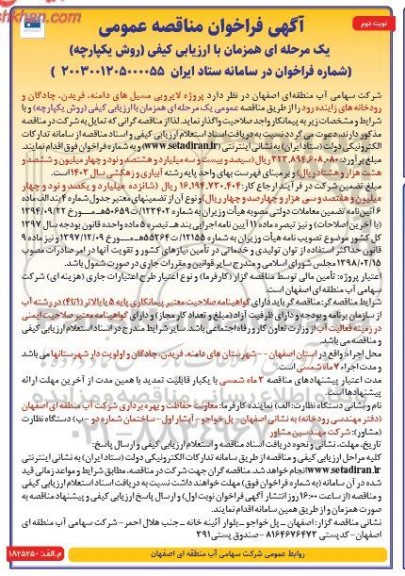 نوبت دوم
آگهی فراخوان مناقصه عمومی
یک مرحله ای همزمان با ارزیابی کیفی (روش یکپارچه)
(شماره فراخوان در سامانه ستاد ایران ۲۰۰۳۰۰۱۲۰۵۰۰۰۰۵۵)
شرکت سهامی آب منطقه‌ای اصفهان در نظر دارد پروژه لایروبی مسیل های دامنه، فریدن، چادگان و
رودخانه های زاینده رود را از طریق مناقصه عمومی یک مرحله ای همزمان با ارزیابی کیفی (روش یکپارچه) و با
شرایط و مشخصات زیر به پیمانکار واجد صلاحیت واگذار نماید. لذا از مناقصه گرانی که تمایل به شرکت در مناقصه
مذکور دارند، دعوت می گردد نسبت به دریافت اسناد استعلام ارزیابی کیفی و اسناد مناقصه از سامانه تدارکات
الکترونیکی دولت (ستاد ایران) به نشانی اینترنتی (www.setadiran.ir) و به شماره فراخوان فوق اقدام نمایند.
مبلغ برآورد: ۳۲۳,۸۹۴,۶۰۸,۰۸۰ ریال (سیصد و بیست و سه میلیارد و هشتصد و نود و چهار میلیون و ششصد و
هشت هزار و هشتاد ریال) و بر مبنای فهرست بهای واحد پایه رشته آبیاری و زهکشی سال ۱۴۰۳ است.
مبلغ تضمین شرکت در فرآیند ارجاع کار: ۱۶,۱۹۴,۷۳۰,۴۰۴ ریال (شانزده میلیارد و یکصد و نود و چهار
میلیون و هفتصد و سی هزار و چهارصد و چهار ریال) و نوع آن از تضمینهای معتبر جدول شماره ۴ بند الف ماده
۶ آئین‌نامه تضمین معاملات دولتی مصوبه هیأت وزیران به شماره ۱۲۳۴۰۲/ت۵۰۶۵۹هـ مورخ ۱۳۹۴/۰۹/۲۲
(با آخرین اصلاحات) و نیز تبصره ماده ۱۱ آیین نامه اجرایی بند هـ تبصره ۵ ماده واحده قانون بودجه سال ۱۳۹۷
کل کشور موضوع تصویب نامه هیأت وزیران به شماره ۱۲۱۵۵/ت۵۵۲۶۴هـ مورخ ۱۳۹۷/۱۲/۰۹ و نیز ماده ۹
قانون حداکثر استفاده از توان تولیدی و خدماتی در تأمین نیازهای کشور و تقویت آنها در امر صادرات مصوب
۱۳۹۸/۰۲/۱۵ مجلس شورای اسلامی و مندرج سایر قوانین و مقررات جاری در صورت شمول باشد.
اعتبار پروژه: تأمین مالی توسط مناقصه گزار (کارفرما) و نوع اعتبار طرح اعتبارات جاری (هزینه ای) شرکت
سهامی آب منطقه ای اصفهان است.
شرایط مناقصه گر: مناقصه گر باید دارای گواهینامه صلاحیت معتبر پیمانکاری پایه ۵ یا بالاتر (۱تا۴) در رشته آب
از سازمان برنامه و بودجه و دارای ظرفیت آزاد (مبلغ و تعداد کار مجاز) و دارای گواهینامه معتبر صلاحیت ایمنی
در زمینه فعالیت آب از وزارت تعاون کار و رفاه اجتماعی باشد. سایر شرایط مندرج در اسناد استعلام ارزیابی کیفی
و مناقصه می باشد.
محل اجرا: واقع در استان اصفهان - - شهرستان های دامنه، فریدن، چادگان و اولویت دار شهرستانها می باشد
و مدت اجرا ۷ ماه شمسی است.
مدت اعتبار پیشنهادهای مناقصه ۳ ماه شمسی با یکبار قابلیت تمدید با همین مدت از آخرین مهلت ارائه
پیشنهادها است.
نام و نشانی دستگاه نظارت: الف) نماینده کارفرما: معاونت حفاظت و بهره برداری شرکت آب منطقه ای اصفهان
(دفتر مهندسی رودخانه) به نشانی اصفهان - پل خواجو - آبشار اول - ساختمان شماره دو - ب) دستگاه نظارت
(مشاور): شرکت مهندسین مشاور
تاریخ، مهلت، نشانی و نحوه دریافت اسناد مناقصه و استعلام ارزیابی کیفی و ارسال پاسخ:
کلیه مراحل ارزیابی کیفی و مناقصه از طریق سامانه تدارکات الکترونیکی دولت (ستاد ایران) به نشانی اینترنتی
www.setadiran.ir انجام خواهد شد. مناقصه گران جهت شرکت در مناقصه، مطابق شرایط و مواعد زمانی قید
شده در آن سامانه (به شماره فراخوان فوق) مهلت خواهند داشت نسبت به دریافت اسناد استعلام ارزیابی کیفی
و مناقصه (از ساعت ۱۶:۰۰ روز انتشار آگهی فراخوان نوبت اول) و ارسال پاسخ ارزیابی کیفی و پیشنهاد مناقصه به
صورت همزمان و از طریق همین سامانه اقدام نمایند.
نشانی مناقصه گزار: اصفهان - پل خواجو - بلوار آئینه خانه - جنب هلال احمر - شرکت سهامی آب منطقه ای
اصفهان - کدپستی ۸۱۶۴۶۷۶۴۷۳ - صندوق پستی ۳۹۱
روابط عمومی شرکت سهامی آب منطقه ای اصفهان
م.الف: ۱۸۲۵۲۵۰